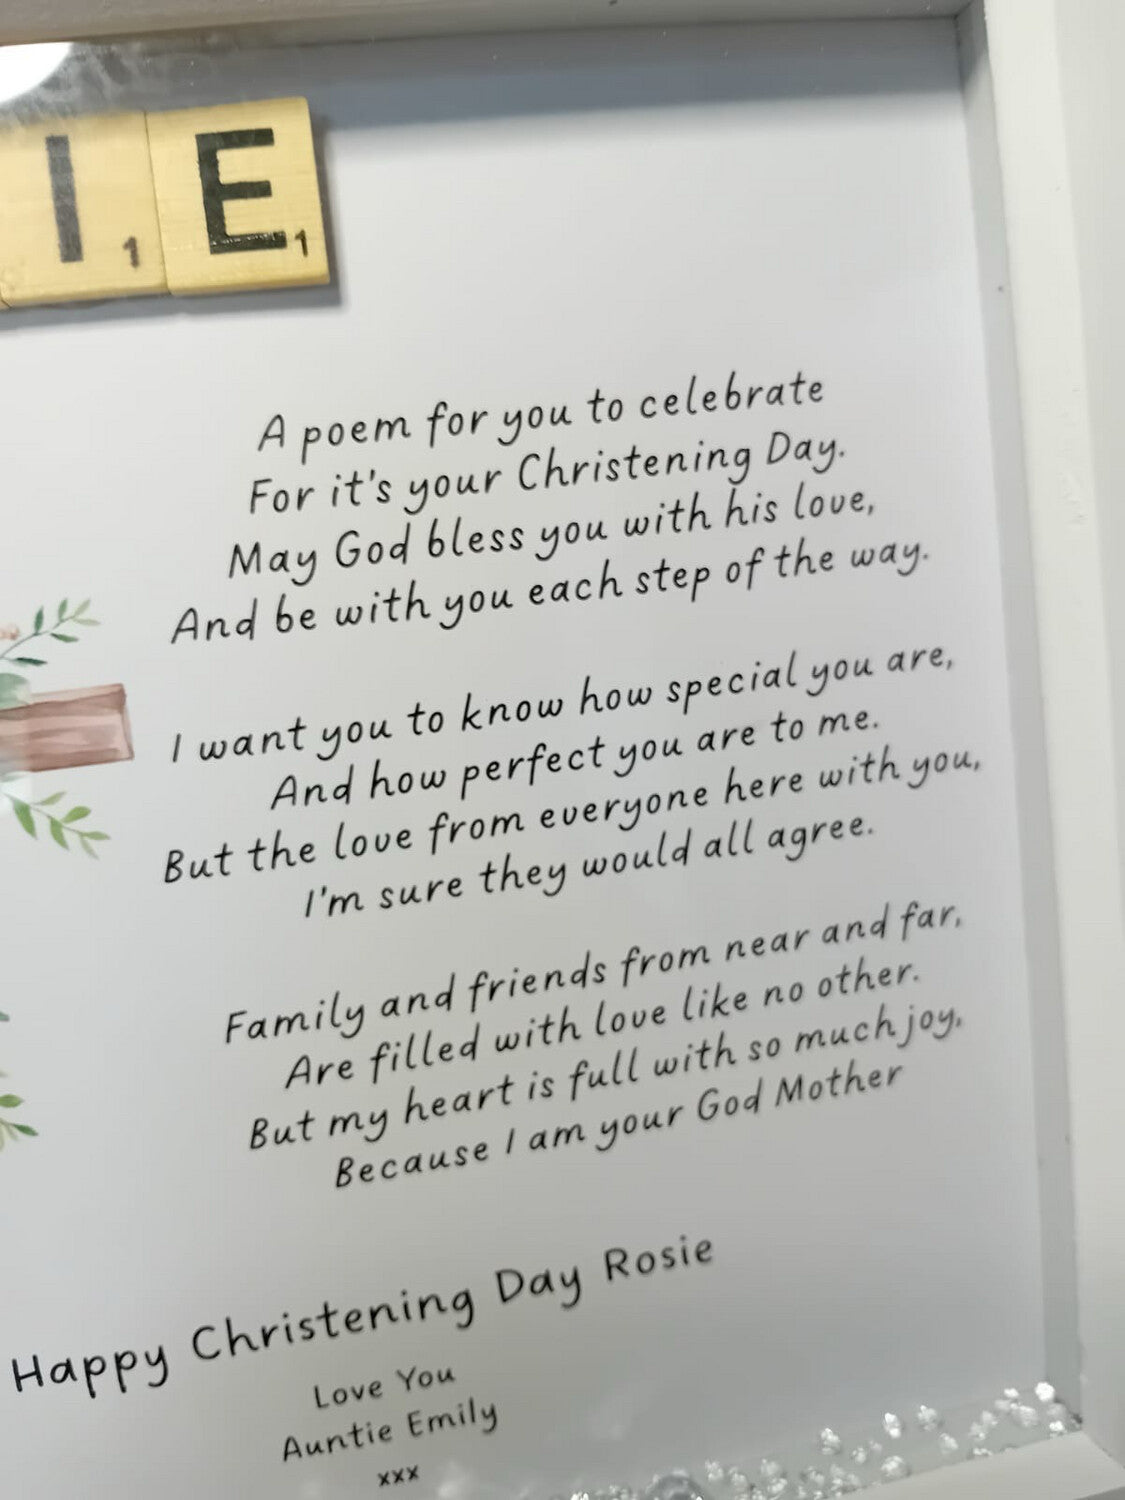 I1 E1
A poem for you to celebrate
For it's your Christening Day.
May God bless you with his love,
And be with you each step of the way.
I want you to know how special you are,
And how perfect you are to me.
But the love from everyone here with you,
I'm sure they would all agree.
Family and friends from near and far,
Are filled with love like no other.
But my heart is full with so much joy,
Because I am your God Mother
Happy Christening Day Rosie
Love You
Auntie Emily
xxx